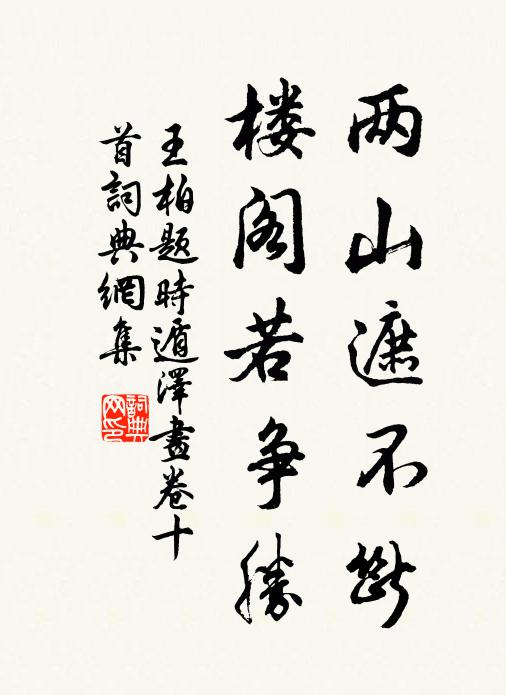 两山遮不断
楼阁若争胜
王柏题時遁澤畫卷十
首詞典網集
詞典網印